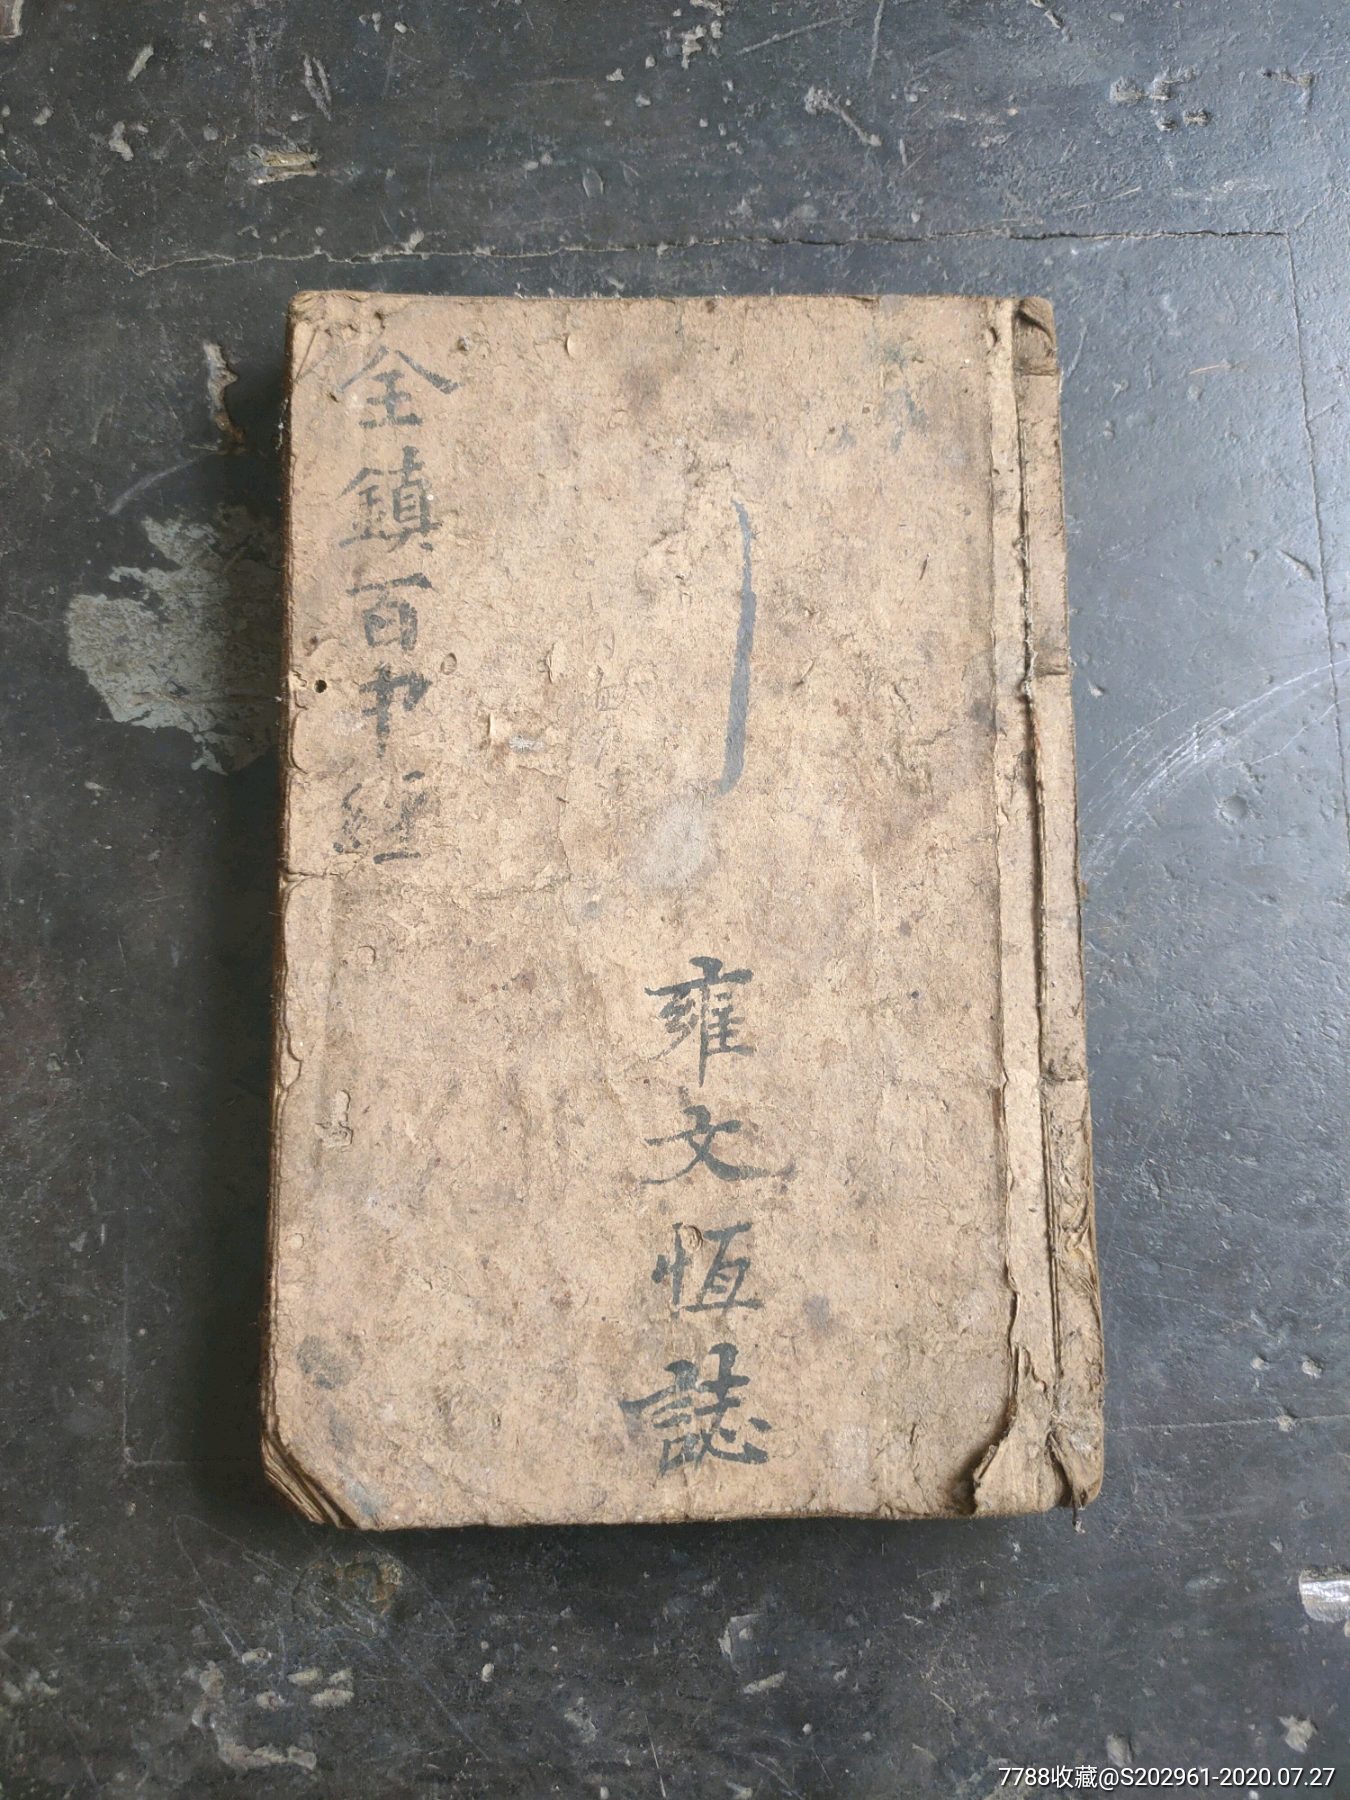 全鎮百中經
雍文恆誌
7788收藏@S202961-2020.07.27